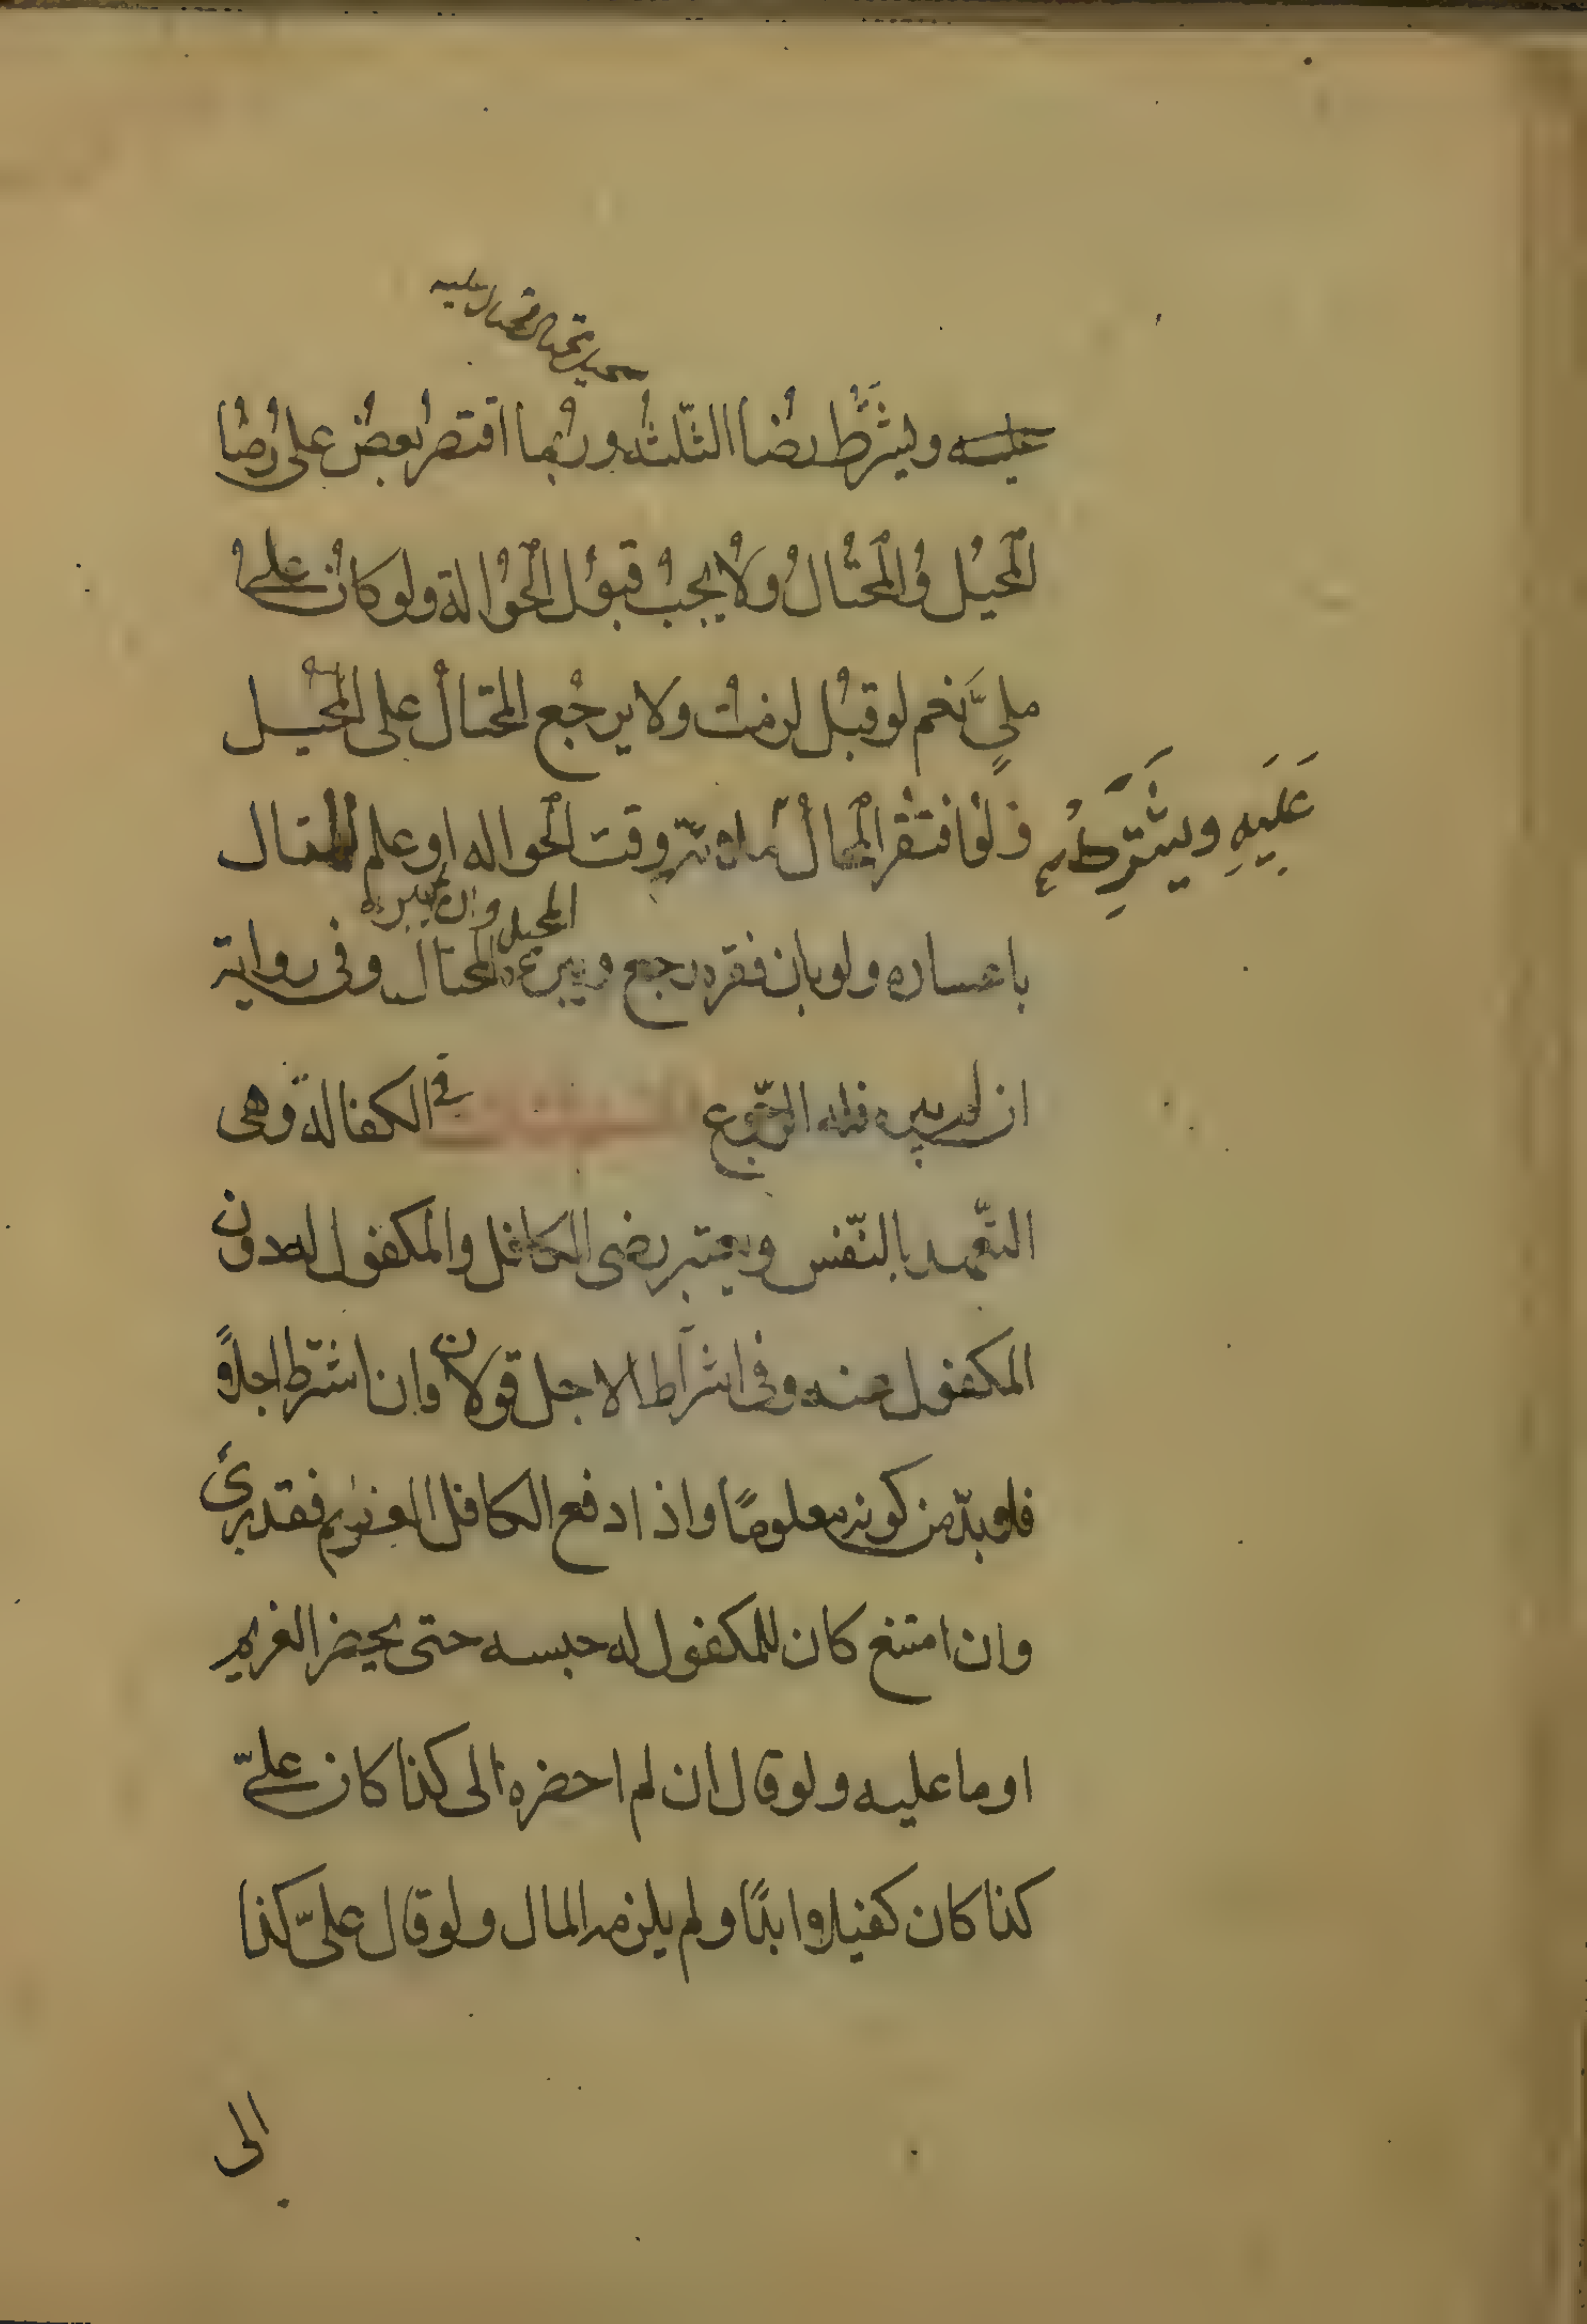 محيل محتال محتال عليه
عليه ويشترط رضا الثلثه وربما اقتصر بعض على رضا
المحيل والمحتال ولا يجب قبول الحوالة ولو كان على
مليّ نعم لو قبل لزمت ولا يرجع المحتال على المحيل
عَلَيهِ ويشترط
ولو افتقر المحال عليه وقت الحواله او علم المحتال
المحيل وان لم يبره
باعساره ولو بان فقره رجع ويبرء المحتال وفى رواية
ان لم يبره فله الرّجوع فى الكفالة وهى
التّعهد بالنّفس ويعتبر رضى الكافل والمكفول له دون
المكفول عنه وفى اشتراط الاجل قولان وان اشترط اجلاً
فلا بدّ من كونه معلومًا واذا دفع الكافل الغريم فقد برئ
وان امتنع كان للمكفول له حبسه حتى يحضر الغريم
او ما عليه ولو قال ان لم احضره الى كذا كان علىّ
كذا كان كفيلا ابدًا ولم يلزمه المال ولو قال علىّ كذا
الى